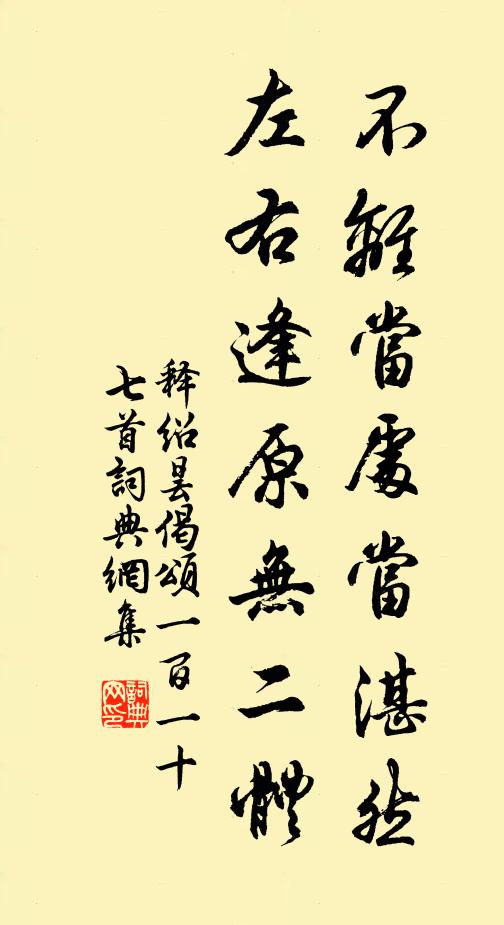 不離當處當湛然
左右逢原無二體
释紹曇偈頌一百一十
七首詞典網集
詞典网印